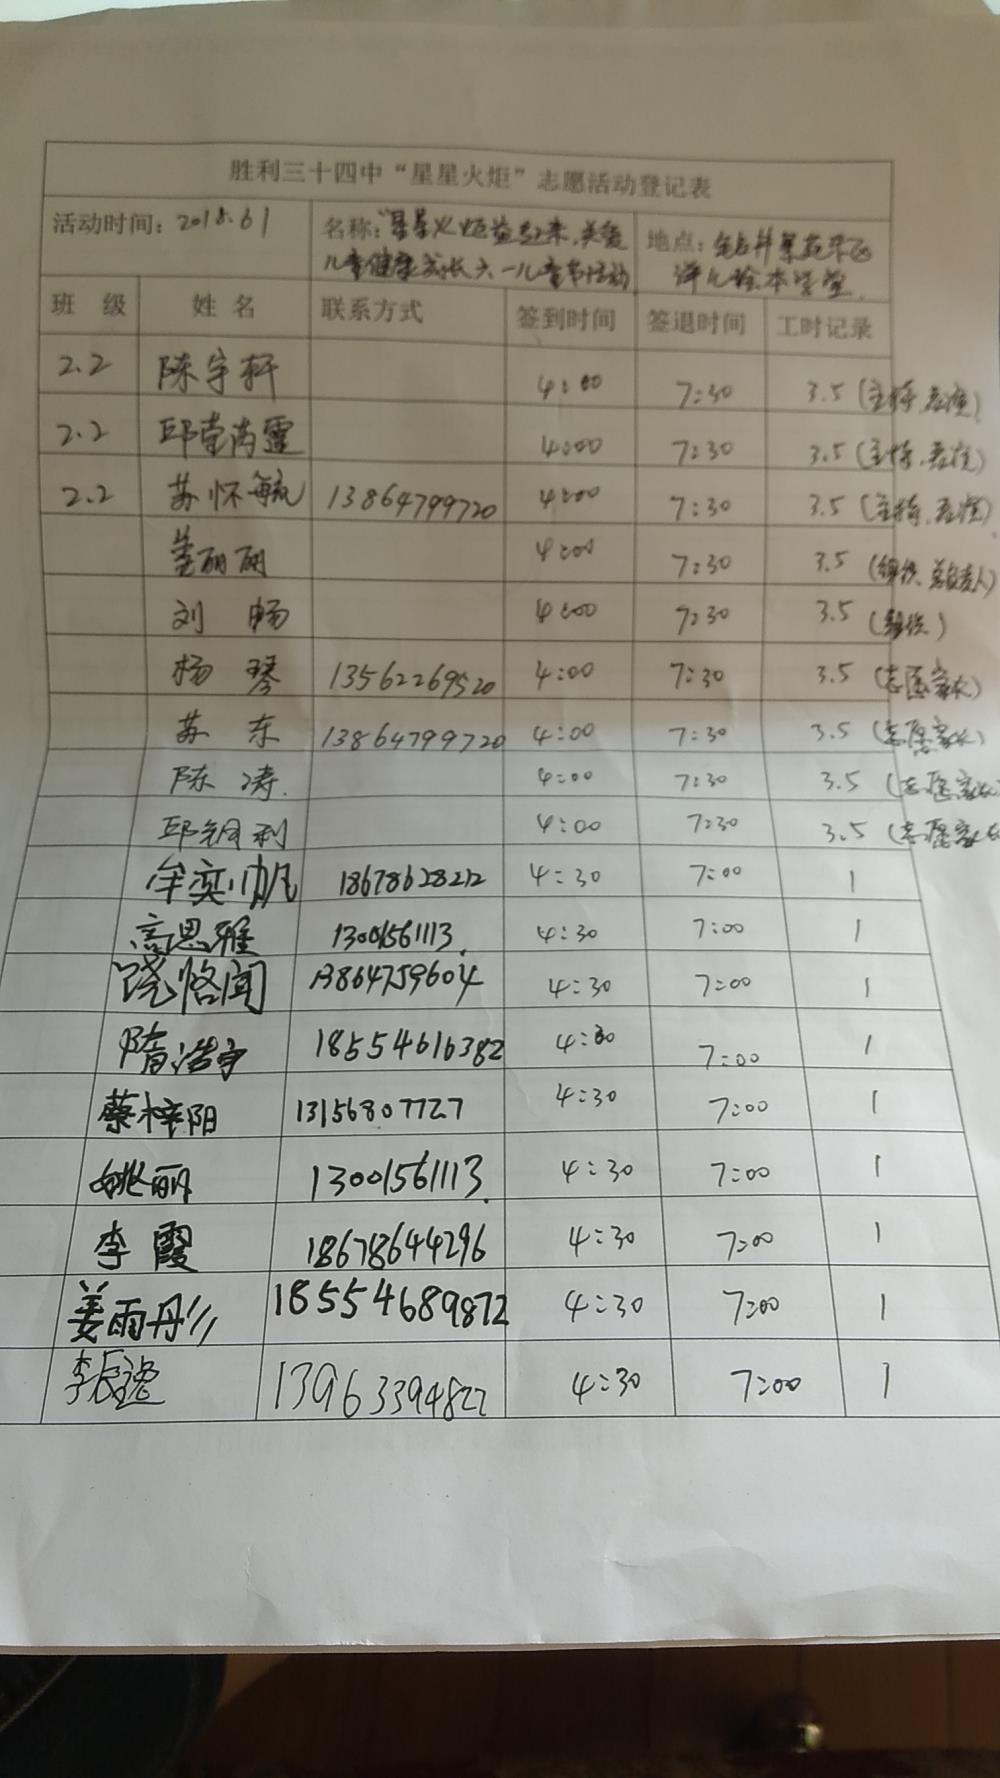 胜利三十四中“星星火炬”志愿活动登记表
活动时间：2018.6.1 名称：“星星火炬益起来，关爱 地点：钻井景苑
儿童健康成长六一儿童节活动 绘本学堂
班 级 姓 名 联系方式 签到时间 签退时间 工时记录
2.2 陈宇轩 4:00 7:30 3.5 (主持、表演)
2.2 邱 4:00 7:30 3.5 (主持、表演)
2.2 苏怀毓 13864799720 4:00 7:30 3.5 (主持、表演)
董丽丽 4:00 7:30 3.5 (组织、总负责人)
刘 畅 4:00 7:30 3.5 (组织)
杨 琴 13562269520 4:00 7:30 3.5 (志愿家长)
苏 东 13864799720 4:00 7:30 3.5 (志愿家长)
陈 涛 4:00 7:30 3.5 (志愿家长
邱 利 4:00 7:30 3.5 (志愿家长
牟奕帆 18678628212 4:30 7:00 1
高思雅 13001561113. 4:30 7:00 1
饶恪闻 13864759604 4:30 7:00 1
隋浩宇 18554616382 4:30 7:00 1
蔡梓阳 13156807727 4:30 7:00 1
姚丽 13001561113. 4:30 7:00 1
李 霞 18678644296 4:30 7:00 1
姜雨彤 18554689872 4:30 7:00 1
李辰逸 13963394822 4:30 7:00 1